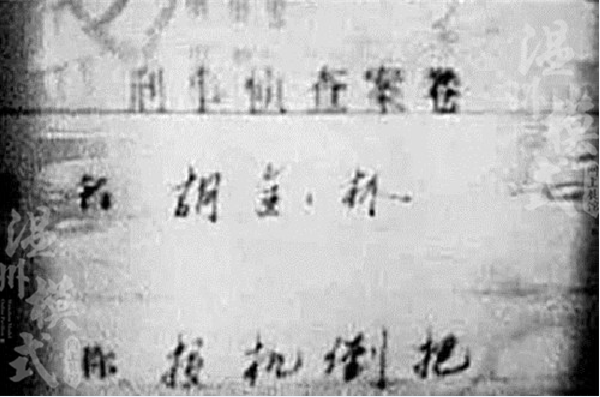 刑事侦查案卷
温州模式
胡金林
温州模式
投机倒把